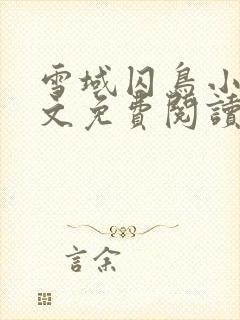 雪域囚鳥小
文免費閱讀
言余